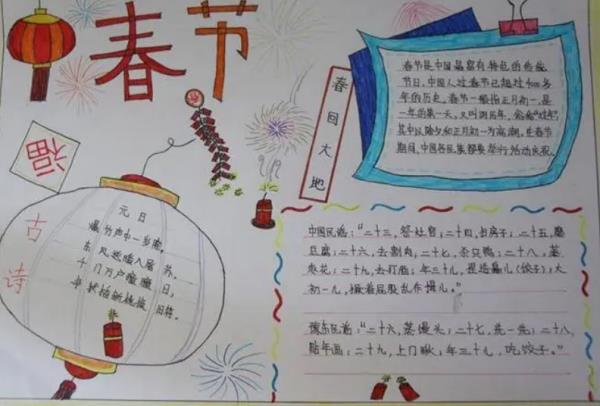 春节
春节是中国最富有特色的传统
节日,中国人过春节已超过4000多
年的历史,春节一般指正月初一,是
一年的第一天,又叫阴历年,俗称"过年"
其中以除夕和正月初一为高潮。在春节
期间,中国各民族都要举行活动庆祝。
春回大地
福
古诗
元日
爆竹声中一岁除,
东风送暖入屠苏.
千门万户曈曈日,
争插新桃换旧符.
中国民谣:"二十三,祭灶官;二十四,扫房子;二十五,磨
豆腐;二十六,去割肉;二十七,杀只鸡;二十八,蒸
枣花;二十九,去打酒;年三十儿,捏造扁儿(饺子),大
初一儿,撅着屁股乱作揖儿。"
豫东民谣:"二十六,蒸馒头;二十七,洗一洗;二十八,
贴年画;二十九,上门瞅;年三十儿,吃饺子。"